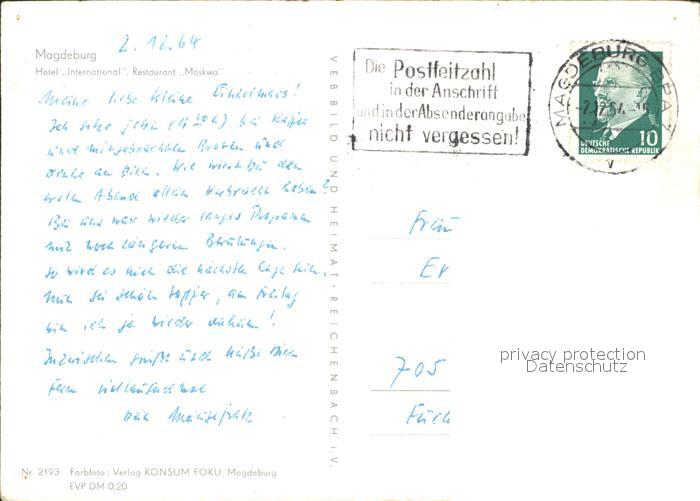 2.12.64
Magdeburg
Hotel „International", Restaurant „Moskwa"
Meine liebe kleine
Ich sitze jetzt bei Kaffee
und mitgebrachten Broten und
denke an Dich. Wie wirst Du den
ersten Abend allein verbracht haben?
Bei uns war wieder langes Programm
mit noch längeren Beratungen.
So wird es auch die nächsten Tage sein.
Nun sei schön tapfer, am Freitag
bin ich ja wieder daheim!
Inzwischen grüßt und küßt Dich
vieltausendmal
Dein
Nr. 2193 Farbfoto: Verlag KONSUM FOKU, Magdeburg
EVP DM 0,20
VEB BILD UND HEIMAT · REICHENBACH i. V.
Die Postleitzahl
in der Anschrift
und in der Absenderangabe
nicht vergessen!
MAGDEBURG BPA
10
DEUTSCHE
DEMOKRATISCHE REPUBLIK
Frau
Er
705
privacy protection
Datenschutz